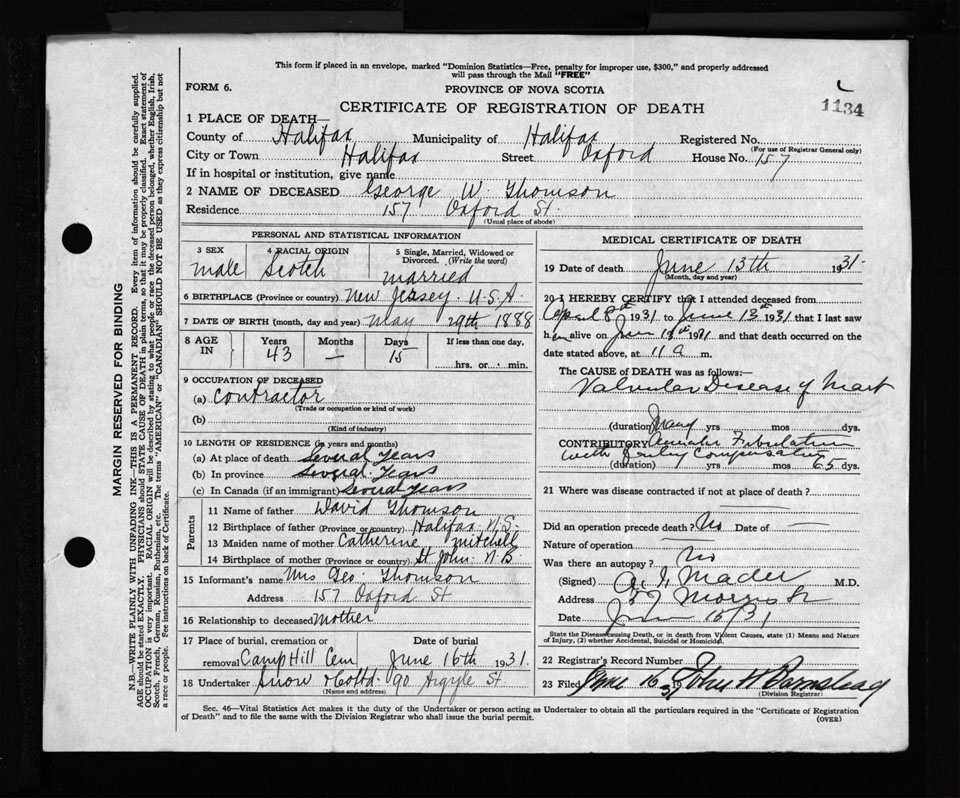 This form if placed in an envelope, marked "Dominion Statistics—Free, penalty for improper use, $300," and properly addressed
will pass through the Mail "FREE"
FORM 6.
PROVINCE OF NOVA SCOTIA
CERTIFICATE OF REGISTRATION OF DEATH
1134
1 PLACE OF DEATH—
County of Halifax Municipality of Halifax Registered No.
(For use of Registrar General only)
City or Town Halifax Street Oxford House No. 157
If in hospital or institution, give name
2 NAME OF DECEASED George W. Thomson
Residence 157 Oxford St.
(Usual place of abode)
PERSONAL AND STATISTICAL INFORMATION
3 SEX 4 RACIAL ORIGIN 5 Single, Married, Widowed or
Divorced. (Write the word)
male Scotch married
6 BIRTHPLACE (Province or country) New Jersey. U.S.A.
7 DATE OF BIRTH (month, day and year) May 29th 1888
8 AGE IN Years Months Days If less than one day,
43 — 15
hrs. or min.
9 OCCUPATION OF DECEASED
(a) Contractor
(Trade or occupation or kind of work)
(b)
(Kind of industry)
10 LENGTH OF RESIDENCE (in years and months)
(a) At place of death Several Years
(b) In province Several Years
(c) In Canada (if an immigrant) Several Years
Parents
11 Name of father David Thomson
12 Birthplace of father (Province or country) Halifax N.S.
13 Maiden name of mother Catherine Mitchell
14 Birthplace of mother (Province or country) St John. N.B.
15 Informant's name Mrs Geo. Thomson
Address 157 Oxford St
16 Relationship to deceased Mother
17 Place of burial, cremation or Date of burial
removal Camp Hill Cem June 16th 1931.
18 Undertaker Snow & Co Ltd. 90 Argyle St.
(Name and address)
MEDICAL CERTIFICATE OF DEATH
19 Date of death June 13th 1931.
(Month, day and year)
20 I HEREBY CERTIFY that I attended deceased from
April 8th 1931 to June 13th 1931 that I last saw
him alive on June 1931 and that death occurred on the
date stated above, at 11 a m.
The CAUSE OF DEATH was as follows:—
Valvular Disease of Heart
(duration) Many yrs mos dys.
CONTRIBUTORY Auricular Fibrillation
with Failing Compensation
(duration) yrs mos 65 dys.
21 Where was disease contracted if not at place of death?
Did an operation precede death? No Date of —
Nature of operation
Was there an autopsy? No
(Signed) Mader M.D.
Address 57 Morris St
Date June 15/31
State the Disease causing Death, or in death from Violent Causes, state (1) Means and Nature
of Injury, (2) whether Accidental, Suicidal or Homicidal.
22 Registrar's Record Number
23 Filed June 16 John H Barnstead
(Division Registrar)
Sec. 46—Vital Statistics Act makes it the duty of the Undertaker or person acting as Undertaker to obtain all the particulars required in the "Certificate of Registration
of Death" and to file the same with the Division Registrar who shall issue the burial permit.
(OVER)
MARGIN RESERVED FOR BINDING
N.B.—WRITE PLAINLY WITH UNFADING INK—THIS IS A PERMANENT RECORD. Every item of information should be carefully supplied.
AGE should be stated EXACTLY. PHYSICIANS should STATE CAUSE OF DEATH in plain terms, so that it may be properly classified. Exact statement of
OCCUPATION is very important. RACIAL ORIGIN will be described by stating to what people or race the deceased person belonged, whether English, Irish,
Scotch, French, German, Russian, Ruthenian, etc. The terms "AMERICAN" or "CANADIAN" SHOULD NOT BE USED as they express citizenship but not
a race or people. Fee instructions on back of Certificate.